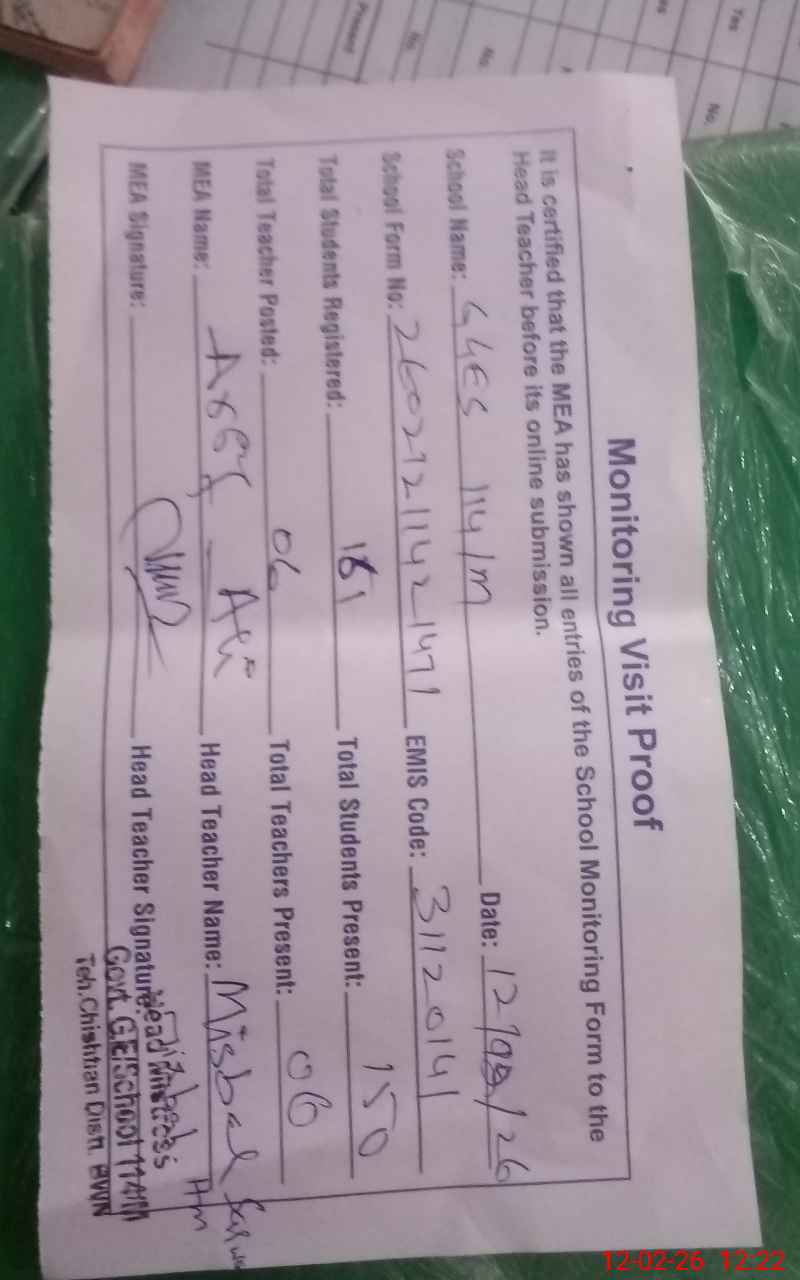 Monitoring Visit Proof
It is certified that the MEA has shown all entries of the School Monitoring Form to the
Head Teacher before its online submission.
School Name: GGES 114/M Date: 12/02/26
School Form No: 2602121142 1471 EMIS Code: 31120141
Total Students Registered: 161 Total Students Present: 150
Total Teacher Posted: 06 Total Teachers Present: 06
MEA Name: Ali Head Teacher Name: Misbah
MEA Signature: Head Teacher Signature:
Head Mistress
Govt. G.E/School 114/M
Teh. Chishtian Distt. BWN
Present
No
No
Yes
No
12-02-26 12:22